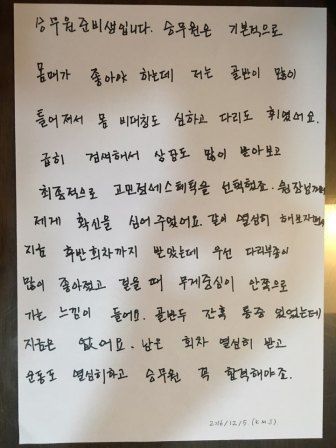 승무원준비생입니다. 승무원은 기본적으로
몸매가 좋아야 하는데 저는 골반이 많이
틀어져서 몸 비대칭도 심하고 다리도 휘었어요.
급히 검색해서 상담도 많이 받아보고
최종적으로 고모점에스테틱을 선택했죠. 원장님께서
제게 확신을 심어 주었어요. 같이 열심히 해보자면서
지금 후반회차까지 받았는데 우선 다리부종이
많이 좋아졌고 걸을 때 무게중심이 안쪽으로
가는 느낌이 들어요. 골반두 간혹 통증 있었는데
지금은 없어요. 남은 회차 열심히 받고
운동도 열심히하고 승무원 꼭 합격해야죠.
2016/12/5 (KMS)